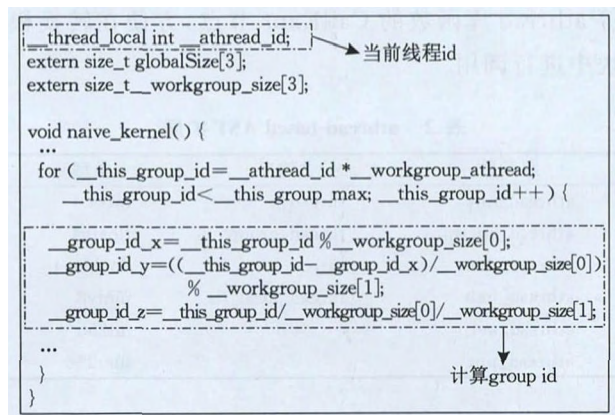 __thread_local int __athread_id;
当前线程id
extern size_t globalSize[3];
extern size_t__workgroup_size[3];
void naive_kernel() {
...
for (__this_group_id=__athread_id *__workgroup_athread;
__this_group_id<__this_group_max; __this_group_id++) {
__group_id_x=__this_group_id %__workgroup_size[0];
__group_id_y=((__this_group_id-__group_id_x)/__workgroup_size[0])
% __workgroup_size[1];
__group_id_z=__this_group_id/__workgroup_size[0]/__workgroup_size[1];
...
计算group id
}
}